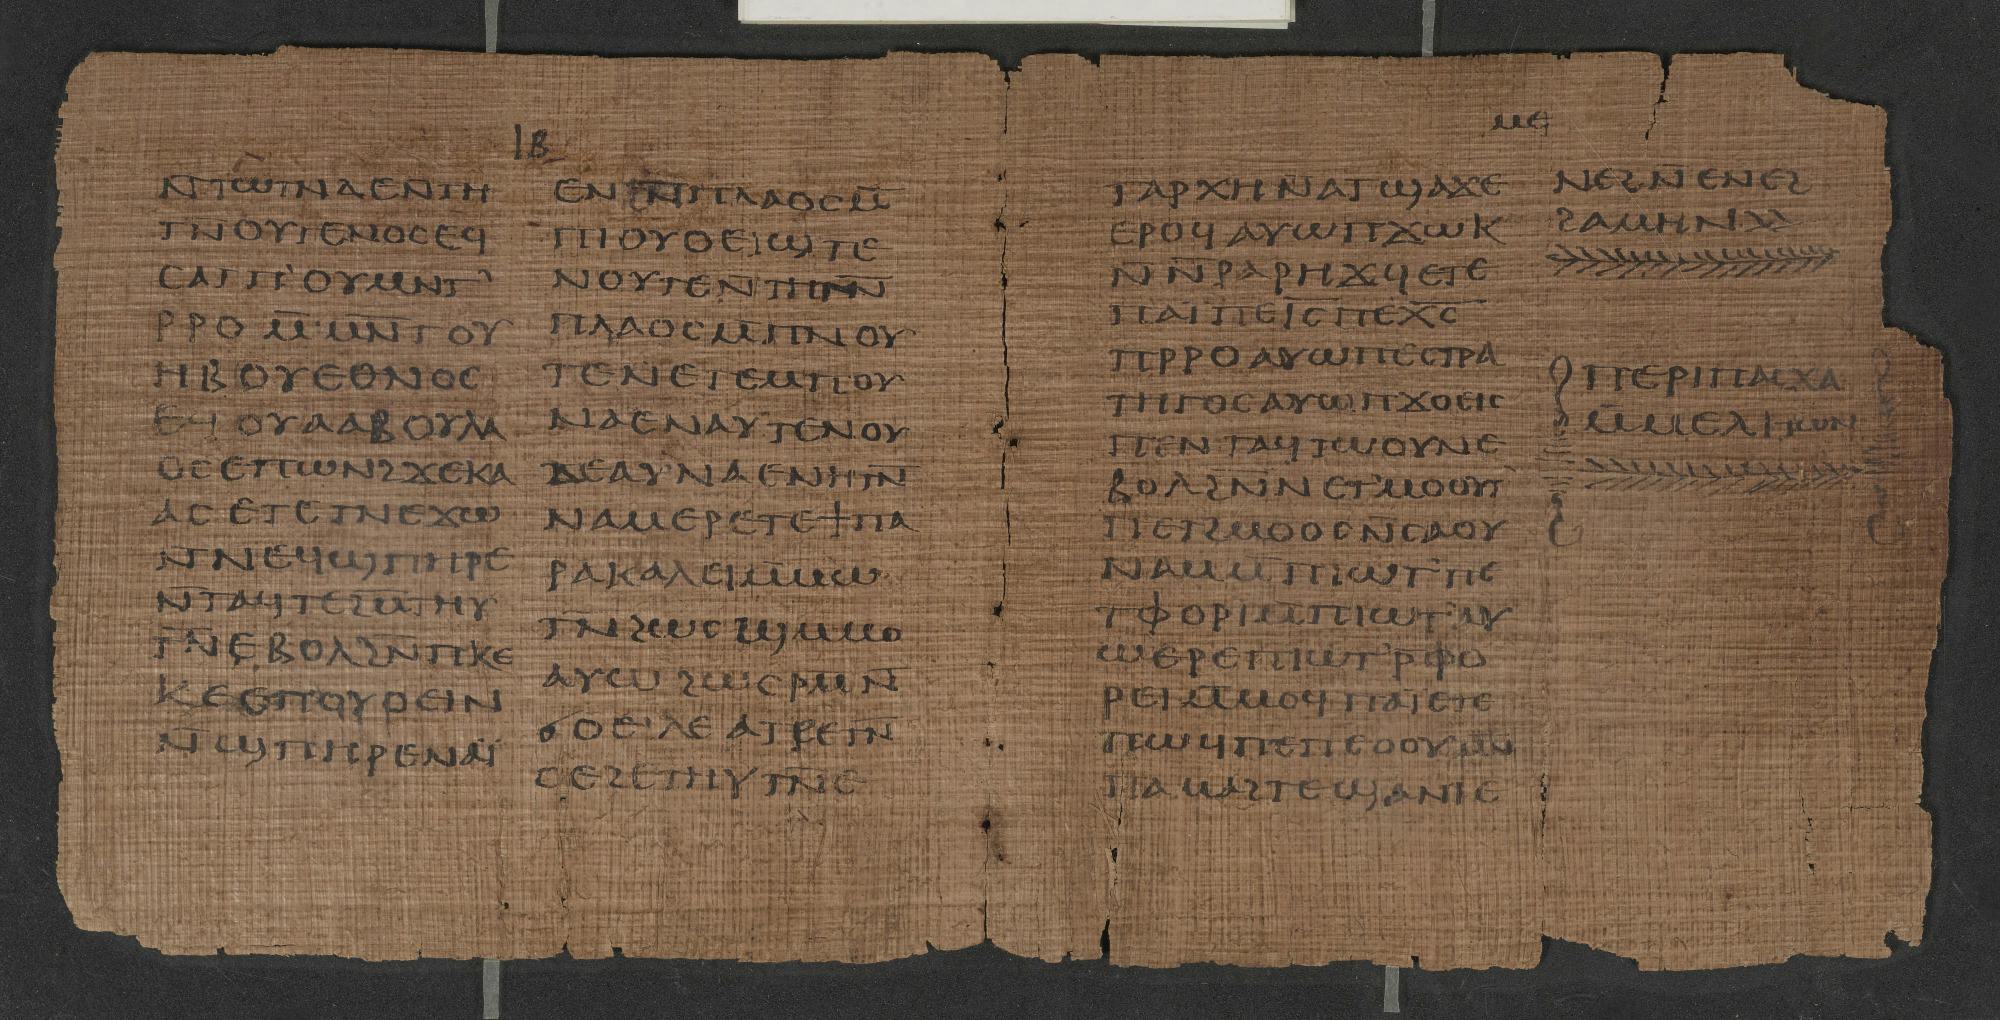 ⲓⲃ
ⲛⲧⲱⲧⲛ ⲇⲉ ⲛⲧⲏ
ⲧⲛ ⲟⲩⲅⲉⲛⲟⲥ ⲉϥ
ⲥⲁⲧⲡ' ⲟⲩⲙⲛⲧ'
ⲣⲣⲟ ⲙ̄ⲙⲛ̄ⲧⲟⲩ
ⲏⲃ ⲟⲩϩⲉⲑⲛⲟⲥ
ⲉϥⲟⲩⲁⲁⲃ ⲟⲩⲗⲁ
ⲟⲥ ⲉⲡⲱⲛϩ ϫⲉⲕⲁ
ⲁⲥ ⲉⲧⲉⲧⲛⲉϫⲱ
ⲛ̄ⲛⲉϥϣⲡⲏⲣⲉ
ⲛ̄ⲧⲁϥⲧⲉϩⲙ̄ⲧⲏⲩ
ⲧⲛ̄ ⲉⲃⲟⲗ ϩⲙ̄ ⲡⲕⲉ
ⲕⲉ ⲉⲡⲟⲩⲟⲉⲓⲛ
ⲛ̄ϣⲡⲏⲣⲉ ⲛⲁⲓ̈
ⲉⲛ ⲡⲗⲁⲟⲥ ⲙ̄
ⲡⲓⲟⲩⲟⲉⲓϣ ⲧⲉ
ⲛⲟⲩ ⲧⲉⲧⲛ̄
ⲡⲗⲁⲟⲥ ⲙ̄ⲡⲛⲟⲩ
ⲧⲉ ⲛⲉⲧⲉⲙⲡⲟⲩ
ⲛⲁⲉ ⲛⲁⲩ ⲧⲉⲛⲟⲩ
ⲇⲉ ⲁⲩⲛⲁⲉ ⲛⲏⲧⲛ̄
ⲛⲁⲙⲉⲣⲉⲧⲉ ϯⲡⲁ
ⲣⲁⲕⲁⲗⲉⲓ ⲙ̄ⲙⲱ
ⲧⲛ̄ ϩⲱⲥ ϣⲙ̄ⲙⲟ
ⲁⲩⲱ ϩⲱⲥ ⲣⲙ̄ⲛ̄
ϭⲟⲉⲓⲗⲉ ⲁⲧⲣⲉⲧⲛ̄
ⲥⲉϩⲉⲧⲏⲩⲧⲛ̄ ⲉ
ⲙⲉ
ⲧⲁⲣⲭⲏ ⲛ̄ⲁⲧϣⲁϫⲉ
ⲉⲣⲟϥ ⲁⲩⲱ ⲡϫⲱⲕ
ⲛ̄ⲛ̄ⲣⲁⲣⲏϫϥ ⲉⲧⲉ
ⲡⲁⲓ ⲡⲉ ⲓ̅ⲥ̅ ⲡⲉⲭ̅ⲥ̅
ⲡⲣⲣⲟ ⲁⲩⲱ ⲡⲉⲥⲧⲣⲁ
ⲧⲏⲅⲟⲥ ⲁⲩⲱ ⲡϫⲟⲉⲓⲥ
ⲡⲉⲛⲧⲁϥⲧⲱⲟⲩⲛ ⲉ
ⲃⲟⲗ ϩⲛ̄ ⲛⲉⲧ'ⲙⲟⲟⲩⲧ'
ⲡⲉⲧϩⲙⲟⲟⲥ ⲛ̄ⲥⲁⲟⲩ
ⲛⲁⲙ ⲙ̄ⲡⲓⲱⲧ' ⲡⲉ
ⲧϥⲟⲣⲓ ⲙ̄ⲡⲓⲱⲧ' ⲁⲩ
ⲱ ⲉⲣⲉⲡⲓⲱⲧ' ⲣ̄ⲫⲟ
ⲣⲉⲓ ⲙ̄ⲙⲟϥ ⲡⲁⲓ̈ ⲉⲧⲉ
ⲡⲱϥ ⲡⲉ ⲡⲉⲟⲟⲩ ⲙⲛ̄
ⲡⲁⲙⲁϩⲧⲉ ϣⲁ ⲛⲓⲉ
ⲛⲉϩ ⲛ̄ⲉⲛⲉϩ
ϩⲁⲙⲏⲛ
ⲡⲉⲣⲓⲡⲁⲥⲭⲁ
ⲙ̄ⲙⲉⲗⲓⲧⲱⲛ